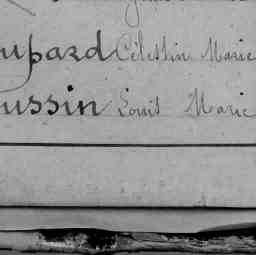 upard Célestin Marie
ussin Louis Marie